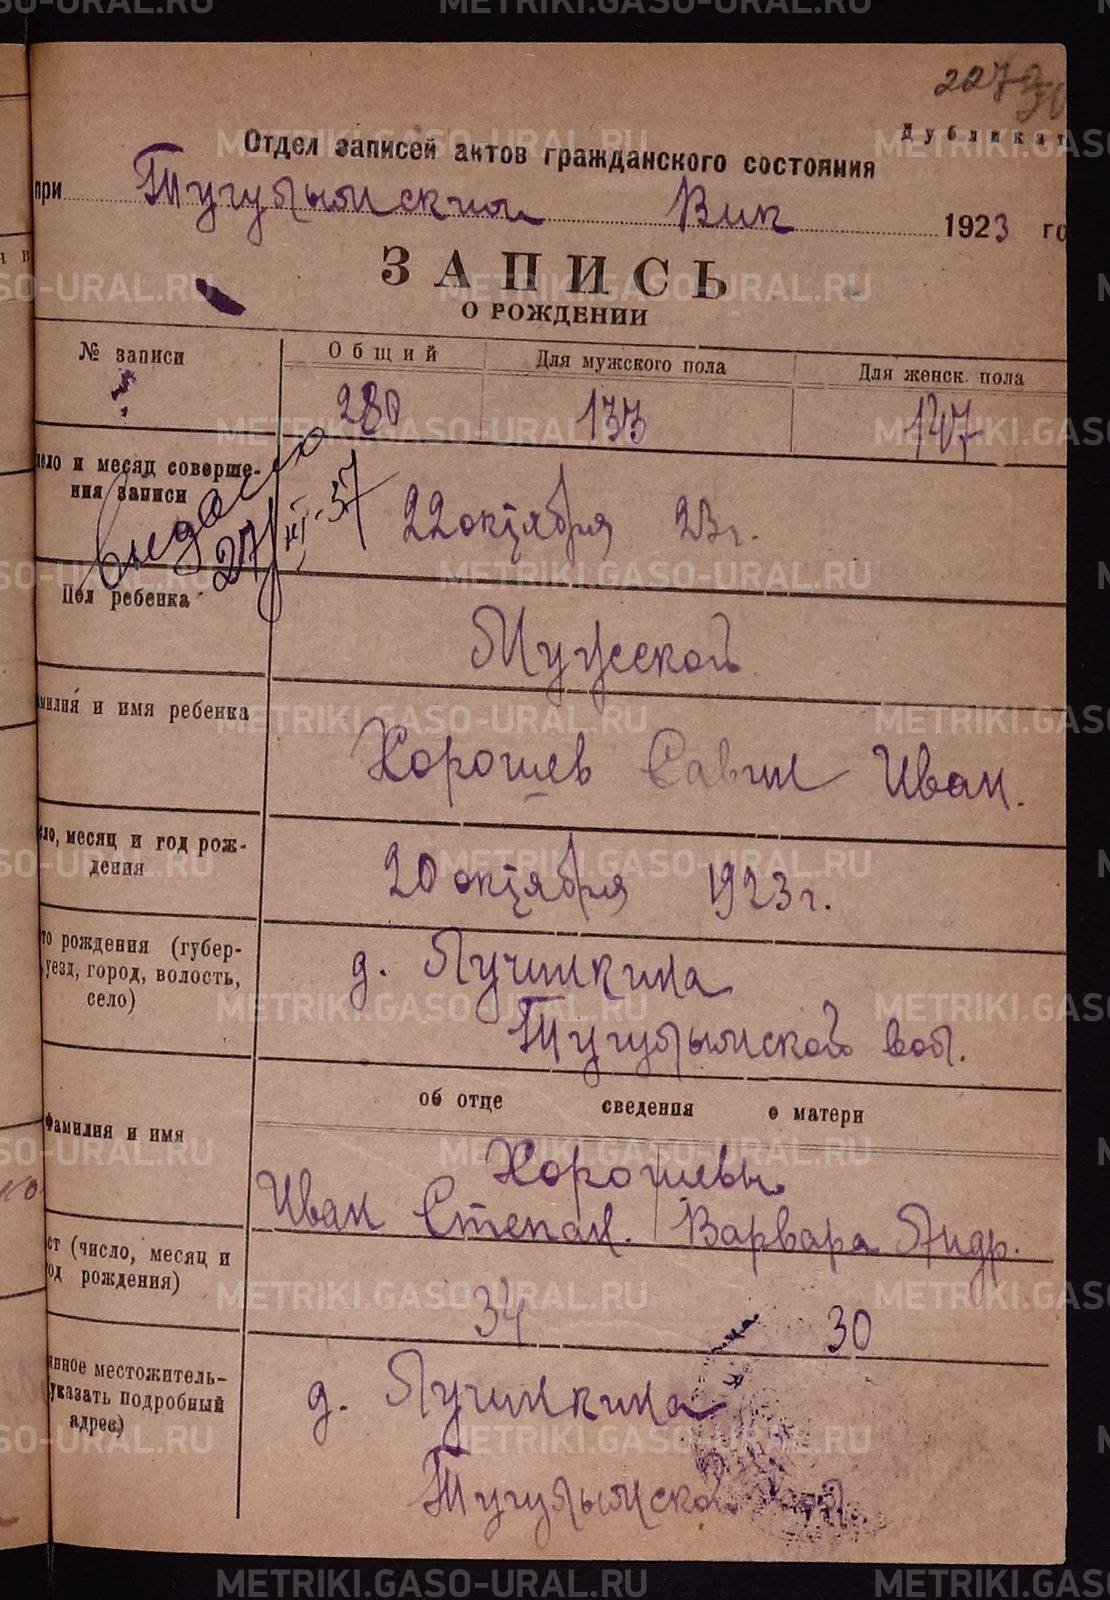 Дубликат
Отдел записей актов гражданского состояния
при Тугулымском Вик 1923 го
ЗАПИСЬ
О РОЖДЕНИИ
№ записи
Общий
Для мужского пола
Для женск. пола
280
133
147
ело и месяц соверше-
ния записи
выдано
27/III-37
22 октября 23 г.
Пол ребенка
Мужской
амилия и имя ребенка
Хорошев Савин Иван.
ло, месяц и год рож-
дения
20 октября 1923 г.
то рождения (губер-
уезд, город, волость,
село)
д. Лучинкина
Тугулымской вол.
об отце сведения о матери
Фамилия и имя
Хорошевы
Иван Степан. Варвара Андр.
ст (число, месяц и
од рождения)
34
30
янное местожитель-
указать подробный
адрес)
д. Лучинкина
Тугулымской вол.
METRIKI.GASO-URAL.RU